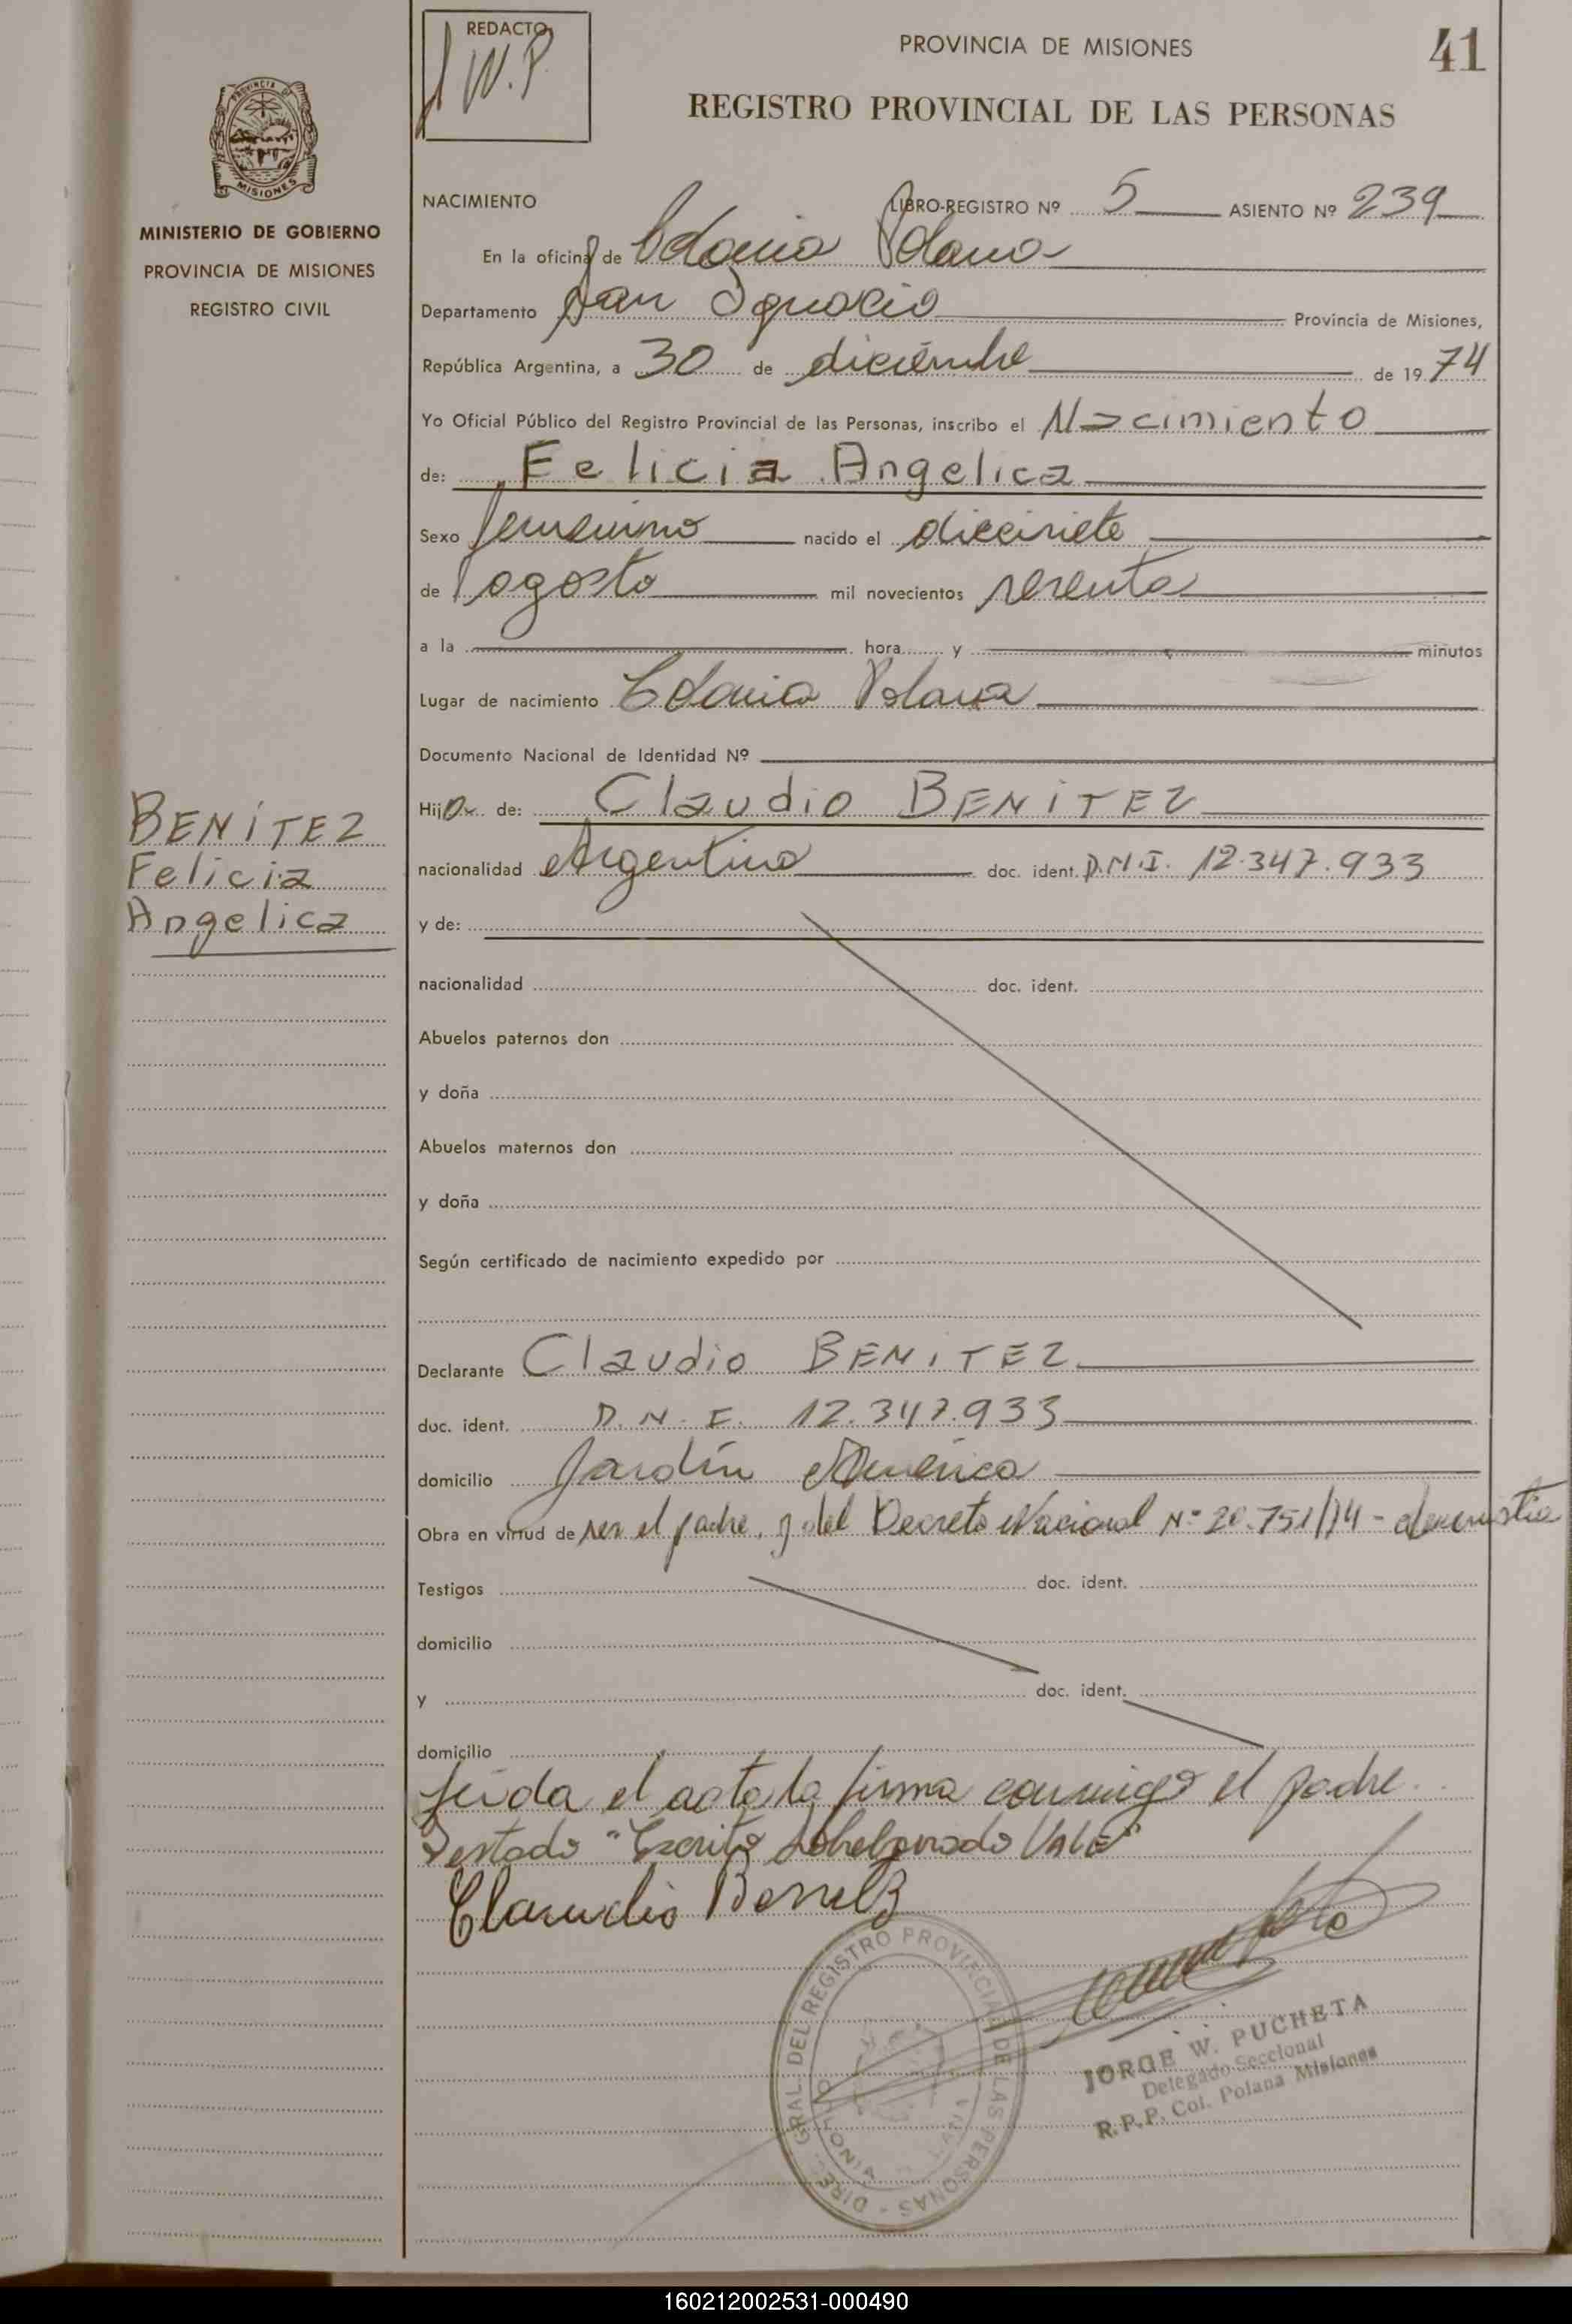 REDACTO
W.P.
PROVINCIA DE MISIONES
41
REGISTRO PROVINCIAL DE LAS PERSONAS
PROVINCIA DE
MISIONES
MINISTERIO DE GOBIERNO
PROVINCIA DE MISIONES
REGISTRO CIVIL
NACIMIENTO LIBRO-REGISTRO Nº 5 ASIENTO Nº 239
En la oficina de Colonia Polana
Departamento San Ignacio Provincia de Misiones,
República Argentina, a 30 de diciembre de 19 74
Yo Oficial Público del Registro Provincial de las Personas, inscribo el Nacimiento
de: Felicia Angelica
Sexo femenino nacido el diecisiete
de agosto mil novecientos sesenta
a la hora y minutos
Lugar de nacimiento Colonia Polana
Documento Nacional de Identidad Nº
Hija de: Claudio BENÍTEZ
BENÍTEZ
Felicia
Angelica
nacionalidad Argentino doc. ident. D.N.I. 12.347.933
y de:
nacionalidad doc. ident.
Abuelos paternos don
y doña
Abuelos maternos don
y doña
Según certificado de nacimiento expedido por
Declarante Claudio BENITEZ
doc. ident. D.N.I. 12.347.933
domicilio Jardín América
Obra en virtud de ser el padre, y del Decreto Nacional Nº 20.751/74 -
Testigos doc. ident.
domicilio
y doc. ident.
domicilio
leída el acta la firma conmigo el padre
Testado "Escrito Vale"
Claudio Benitez
DIREC. GRAL. DEL REGISTRO PROVINCIAL DE LAS PERSONAS
COLONIA
JORGE W. PUCHETA
Delegado Seccional
R.P.P. Col. Polana Misiones
160212002531-000490